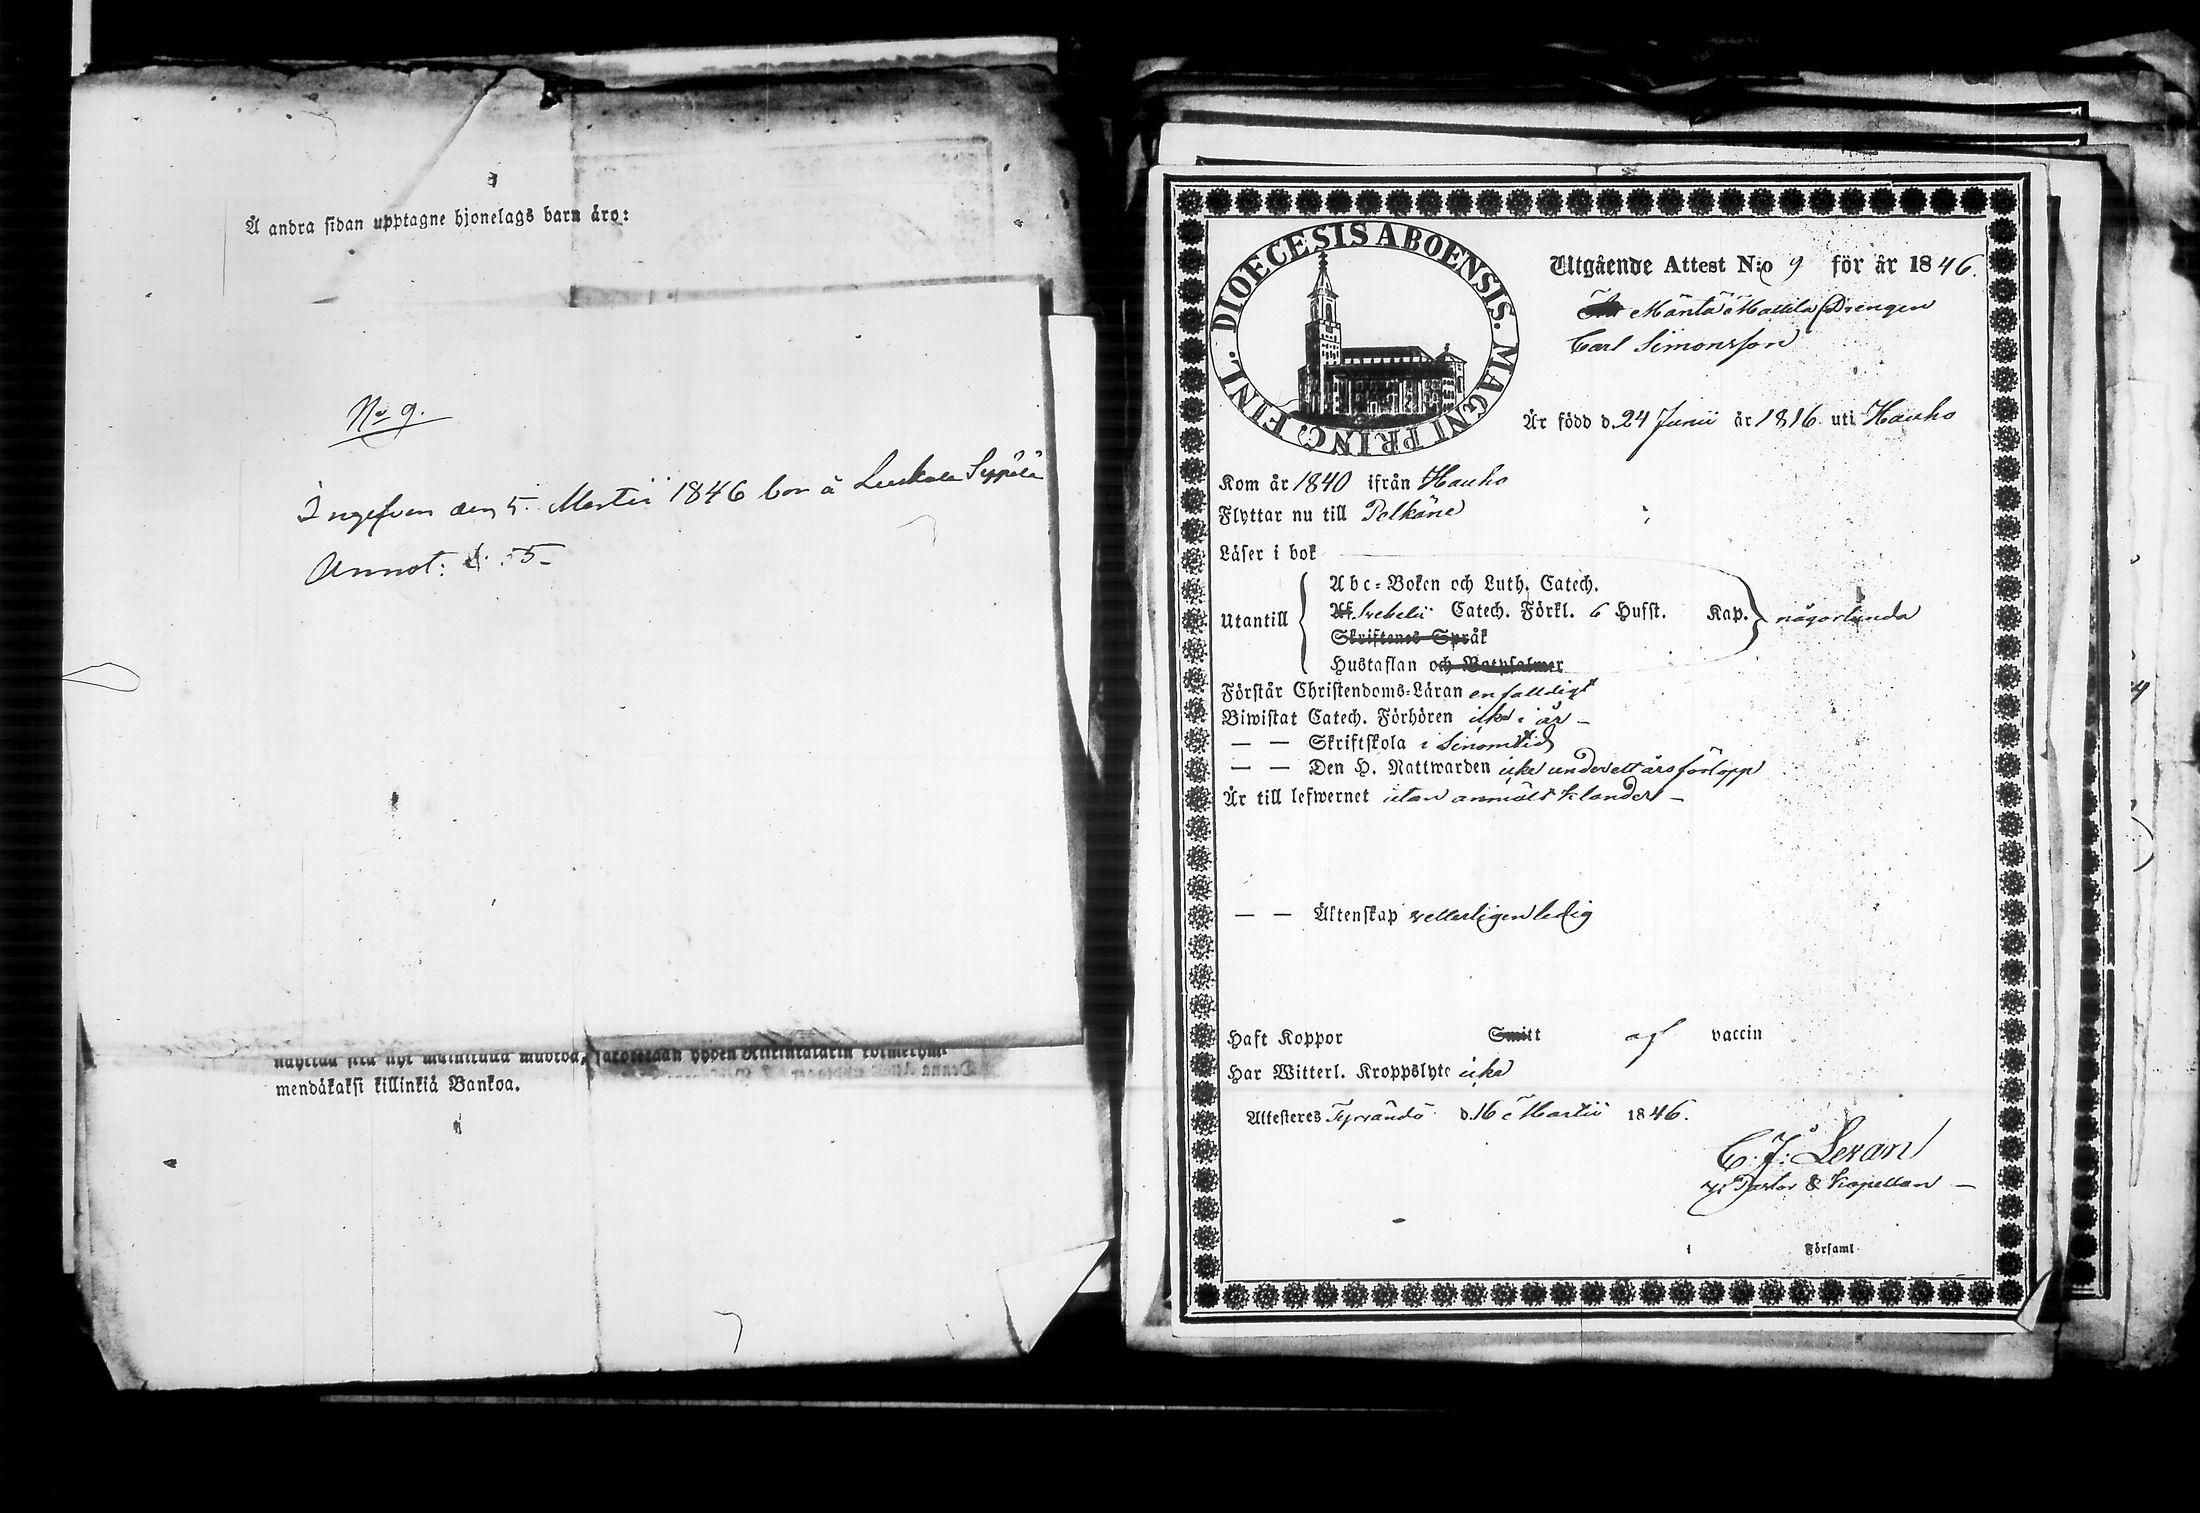 Å andra sidan upptagne hjonelags barn äro:
No 9.
Ingifven den 5. Martii 1846 bor å Luikala Seppälä
Annot: S. 55-
mendäkaksi killinkiä Bankoa.
DIOECESIS ABOENSIS. MAGNI PRINC. FINL.
Utgående Attest N:o 9 för år 1846.
Mäntä Mattila Drengen
Carl Simonsson
Är född d. 24 Junii år 1816 uti Hauho
Kom år 1840 ifrån Hauho
Flyttar nu till Pelkäne
Läser i bok
Utantill
Abc-Boken och Luth. Catech.
Af Svebelii Catech. Förkl. 6 Hufst. Kap. någorlunda
Skriftenes Språk
Hustaflan och Botpsalmer
Förstår Christendoms-Läran enfaldigt
Biwistat Catech. Förhören icke i år -
— — Skriftskola i sinom tid
— — Den H. Nattwarden icke under ett års förlopp
Är till lefwernet utan anmäldt klander -
— — Äktenskap vetterligen ledig
Haft Koppor Smitt af vaccin
Har Witterl. Kroppslyte icke
Attesteres Tyrvändö d. 16 Martii 1846.
C. J. Levan
V. Pastor & Kapellan -
i Församl.